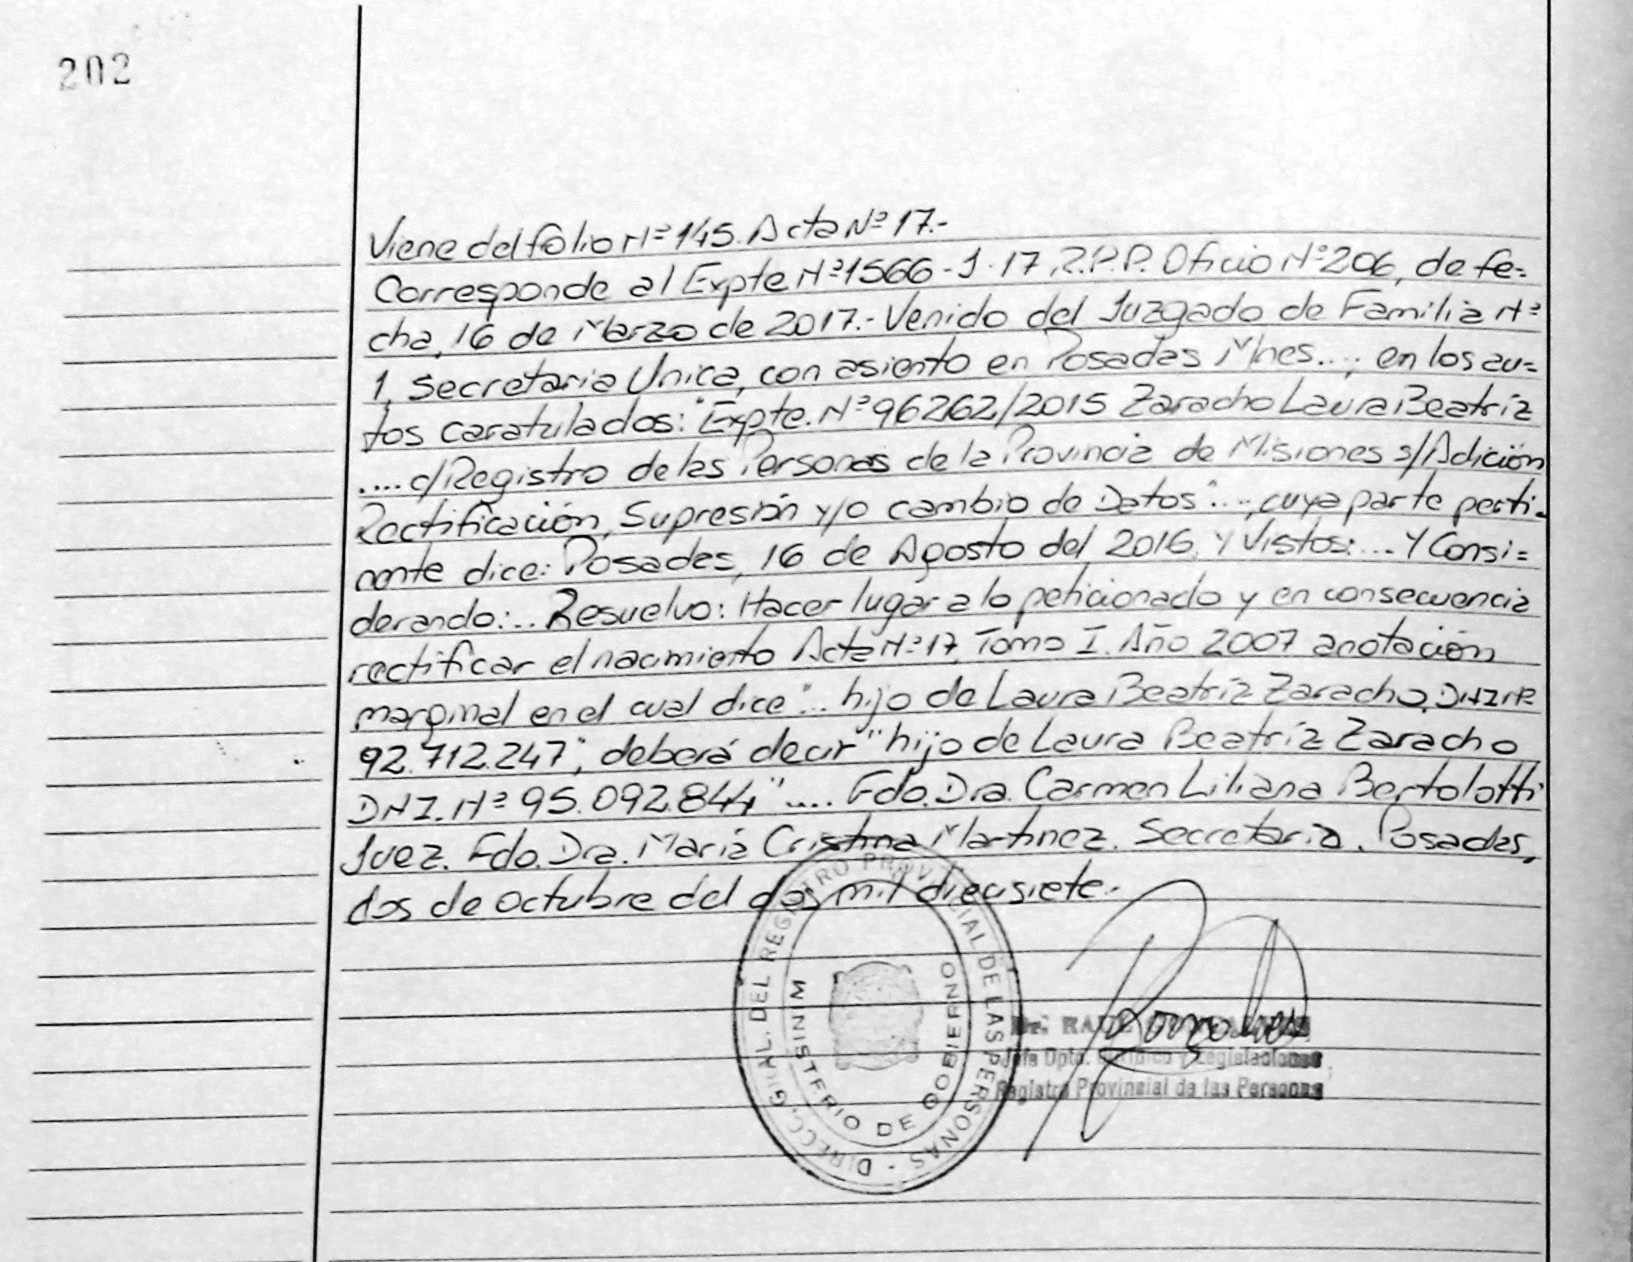 202
Viene del folio Nº 145. Acta Nº 17.-
Corresponde al Expte Nº 1566-J-17 R.P.P. Oficio Nº 206, de fe=
cha, 16 de Marzo de 2017.- Venido del Juzgado de Familia Nº
1, Secretaria Unica, con asiento en Posadas Mnes...., en los au=
tos caratulados: "Expte. Nº 96262/2015 Zaracho Laura Beatríz
.... c/Registro de las Personas de la Provincia de Misiones s/Adición
Rectificación, Supresión y/o cambio de Datos"..., cuya parte perti-
nente dice: Posadas, 16 de Agosto del 2016, Y Vistos:.... Y Consi=
derando:... Resuelvo: Hacer lugar a lo peticionado y en consecuencia
rectificar el nacimiento Acta Nº 17, Tomo I. Año 2007 anotación
marginal en el cual dice "... hijo de Laura Beatríz Zaracho, DNI Nº
92.712.247", deberá decir "hijo de Laura Beatríz Zaracho
DNI. Nº 95.092.844".... Fdo. Dra. Carmen Liliana Bertolotti
Juez. Fdo. Dra. María Cristina Martinez. Secretaria. Posadas,
dos de octubre del dos mil diecisiete.-
DIRECC. GRAL. DEL REGISTRO PROVINCIAL DE LAS PERSONAS -
MINISTERIO DE GOBIERNO
Dr. RAUL
Jefe Dpto. Jurídico y Legislaciones
Registro Provincial de las Personas